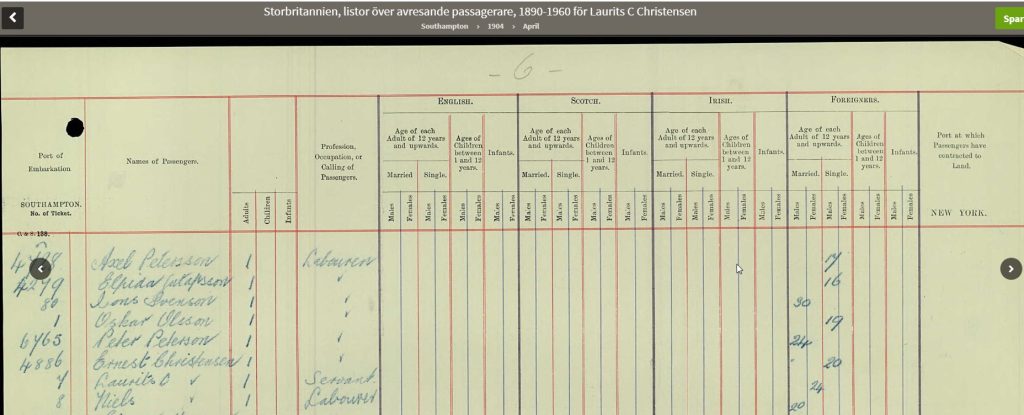 Storbritannien, listor över avresande passagerare, 1890-1960 för Laurits C Christensen
Southampton › 1904 › April
Spar
- 6 -
ENGLISH. SCOTCH. IRISH. FOREIGNERS.
Port of Embarkation
SOUTHAMPTON.
No. of Ticket.
Names of Passengers.
Adults Children Infants
Profession, Occupation, or Calling of Passengers.
Age of each Adult of 12 years and upwards. Ages of Children between 1 and 12 years. Infants.
Married. Single.
Males Females Males Females Males Females Males Females
Age of each Adult of 12 years and upwards. Ages of Children between 1 and 12 years. Infants.
Married. Single.
Males Females Males Females Males Females Males Females
Age of each Adult of 12 years and upwards. Ages of Children between 1 and 12 years. Infants.
Married. Single.
Males Females Males Females Males Females Males Females
Age of each Adult of 12 years and upwards. Ages of Children between 1 and 12 years. Infants.
Married. Single.
Males Females Males Females Males Females Males Females
Port at which Passengers have contracted to Land.
NEW YORK.
C. & S. 138.
Axel Petersson 1 Labourer 17
4279 1 " 16
80 Svenson 1 " 30
1 Oskar Olsson 1 " 19
6765 Peter Peterson 1 " 24
4886 Ernest Christensen 1 " 20
7 Laurits C " 1 Servant 24
8 Niels " 1 Labourer 20